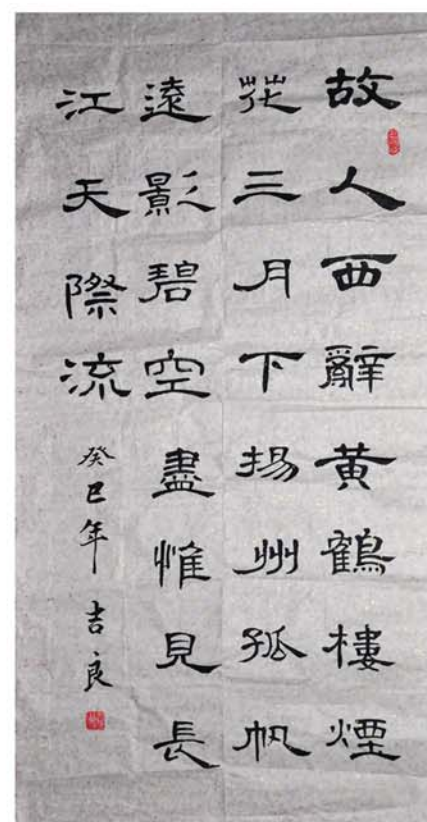 故人西辭黄鶴樓煙
花三月下揚州孤帆
遠影碧空盡惟見長
江天際流
癸巳年 吉良